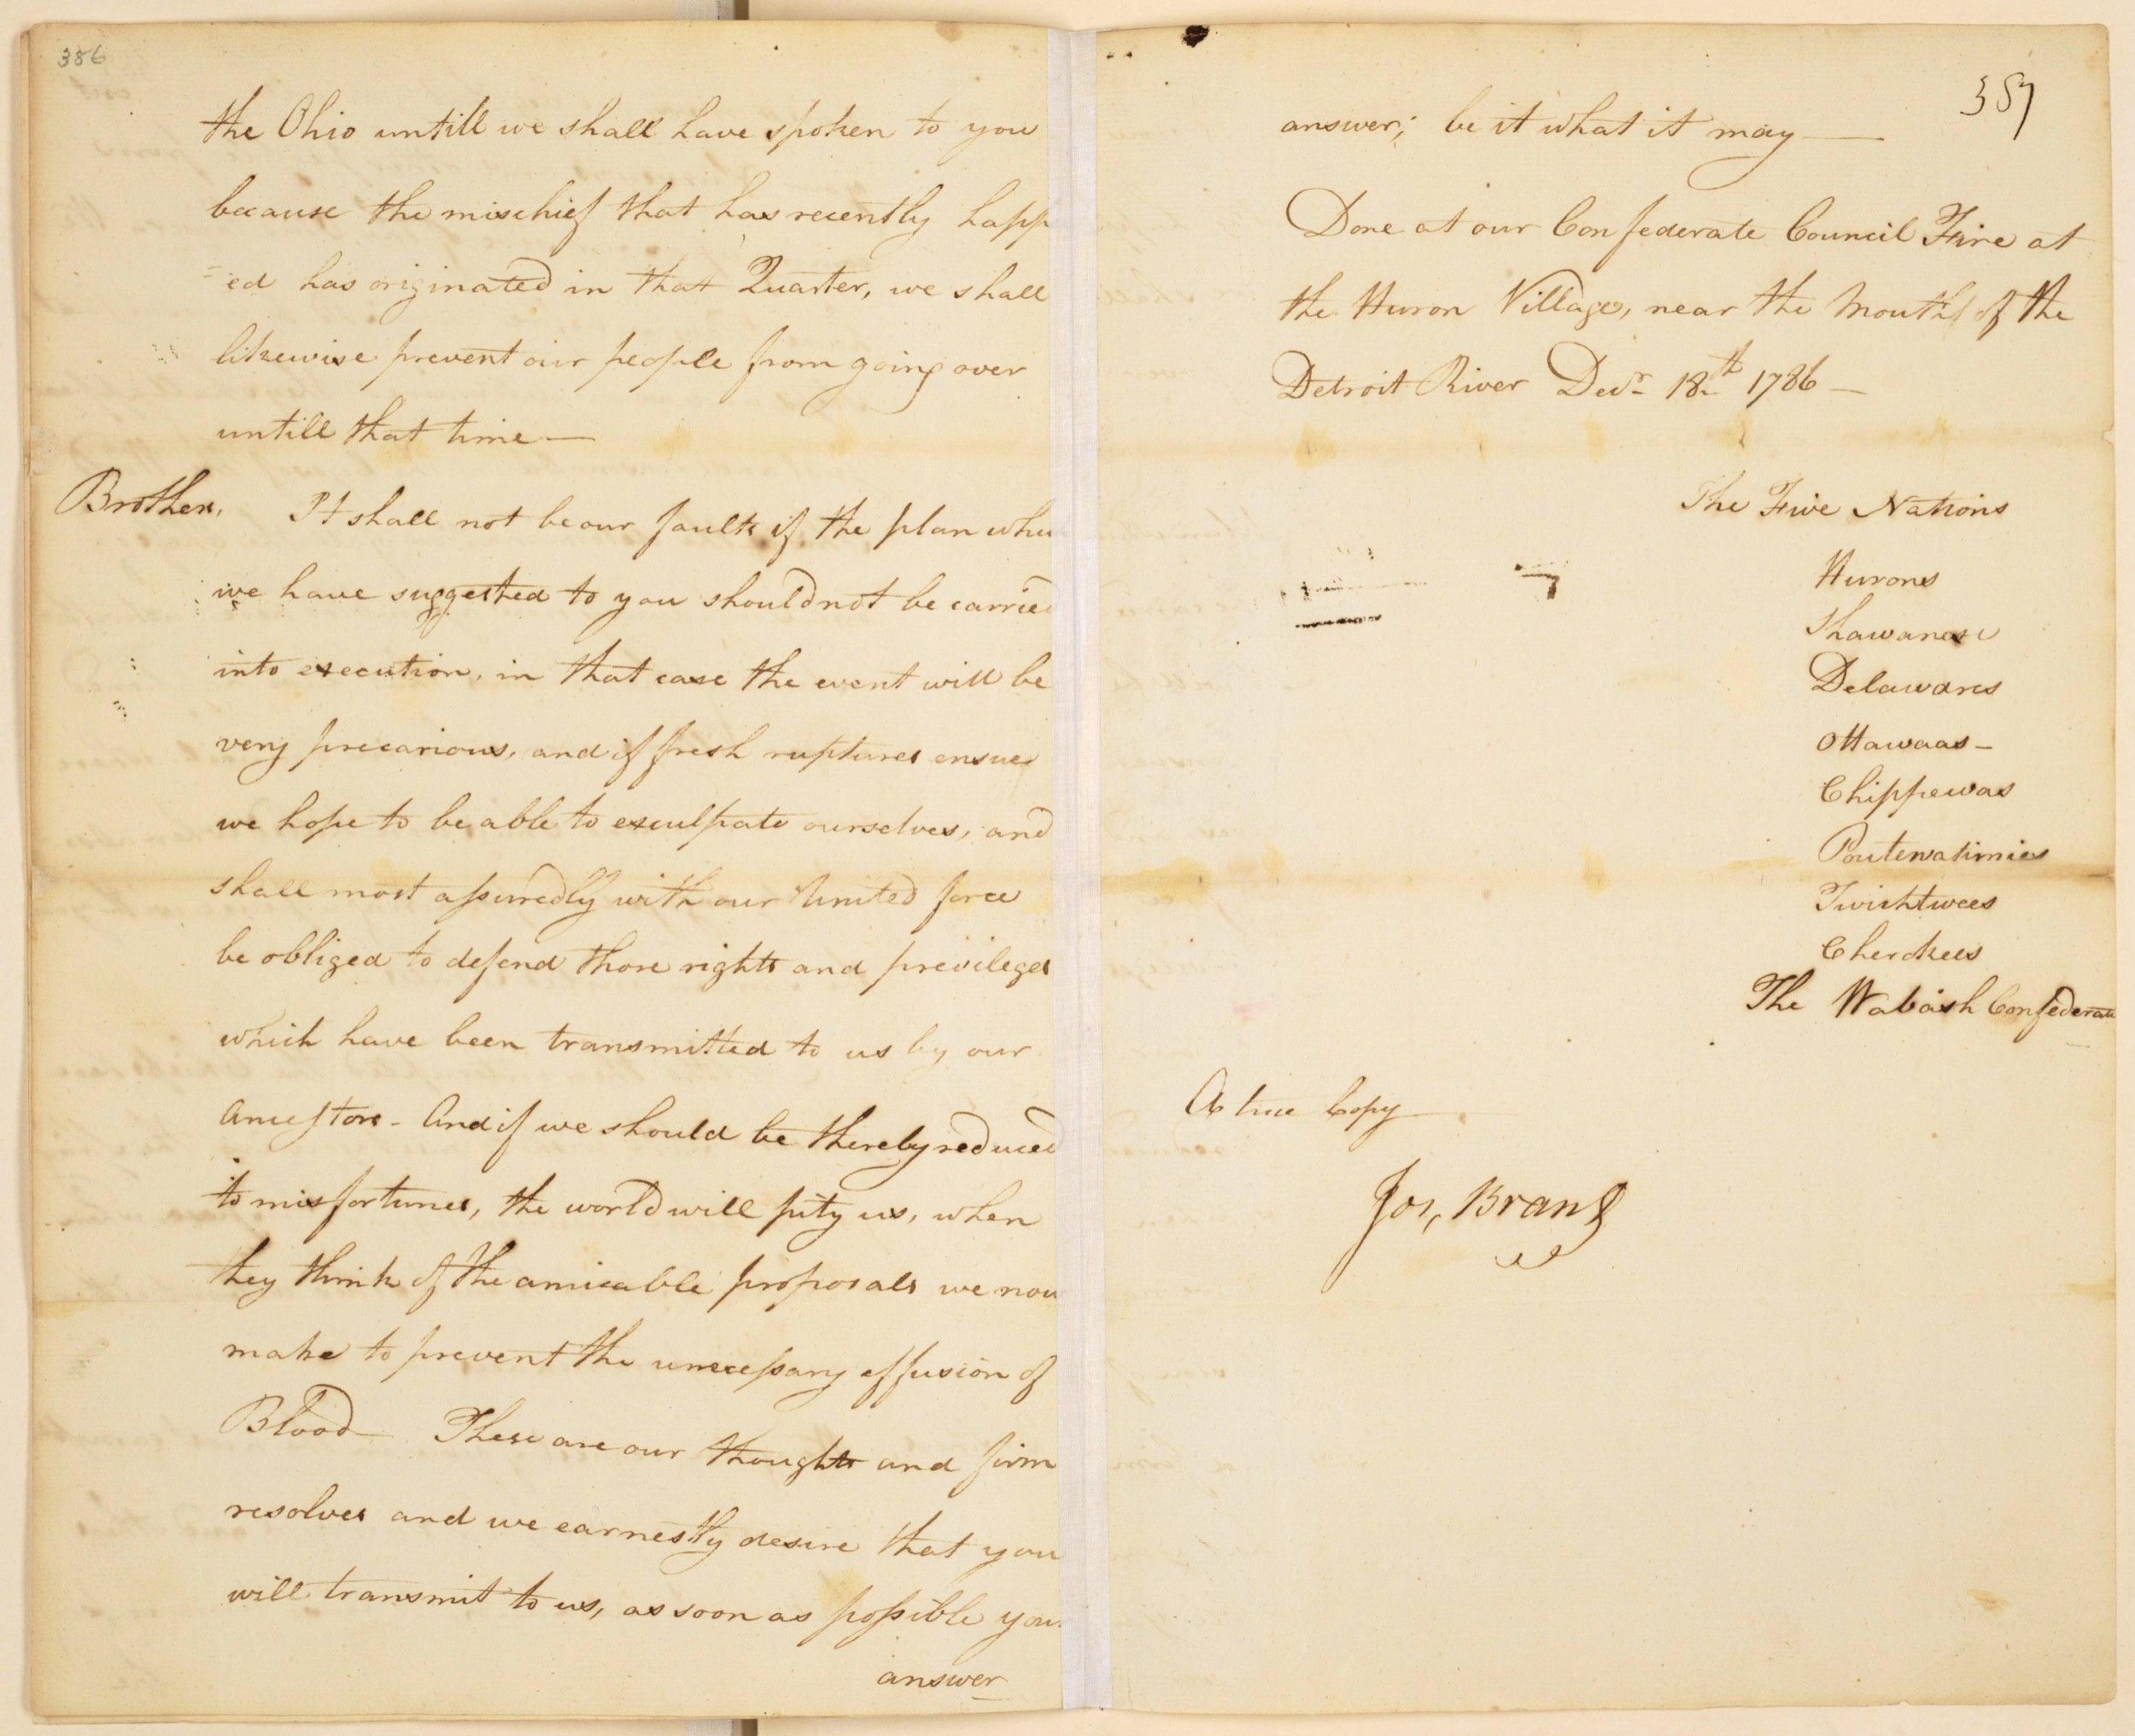 386
the Ohio untill we shall have spoken to you
because the mischief that has recently happ
=ed has originated in that Quarter, we shall
likewise prevent our people from going over
untill that time —
Brothers, It shall not be our faults if the plan whic
we have suggested to you should not be carried
into execution, in that case the event will be
very precarious, and if fresh ruptures ensue
we hope to be able to exculpate ourselves, and
shall most assuredly with our United force
be obliged to defend those rights and previleges
which have been transmitted to us by our
Ancestors - And if we should be thereby reduced
to misfortunes, the world will pity us, when
they think of the amicable proposals we now
make to prevent the unnecessary effusion of
Blood — These are our thoughts and firm
resolves and we earnestly desire that you
will transmit to us, as soon as possible you
answer
387
answer; be it what it may —
Done at our Confederate Council Fire at
the Huron Village, near the Mouth of the
Detroit River Decr. 18th 1786 —
The Five Nations
Hurons
Shawanese
Delawares
Ottawaas -
Chippewas
Poutewatimies
Twichtwees
Cherokees
The Wabash Confederate
A true Copy
Jos, Brant